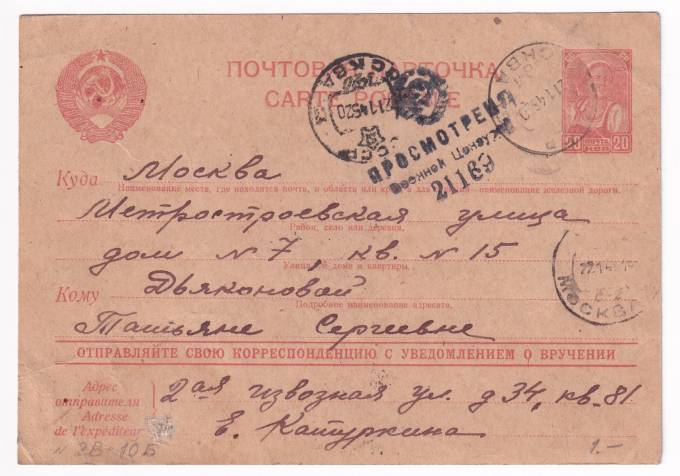 ПОЧТОВАЯ КАРТОЧКА
CARTE POSTALE
МОСКВА
211452 0
МОСКВА
ПРОСМОТРЕНО
Военной Цензурой
21189
20 ПОЧТА 20
Куда Москва
Наименование места, где находится почта, и области или края, а для станций — наименование железной дороги.
Метростроевская улица
Район, село или деревня.
дом № 7, кв. № 15
Улица, № дома и квартиры.
Кому Дьяконовой
Подробное наименование адресата.
Татьяне Сергеевне
МОСКВА
ОТПРАВЛЯЙТЕ СВОЮ КОРРЕСПОНДЕНЦИЮ С УВЕДОМЛЕНИЕМ О ВРУЧЕНИИ
Адрес отправителя
Adresse de l'expéditeur
2ая извозная ул. д 34, кв. 81
Е. Катуркина
N 2В-10Б
1.-